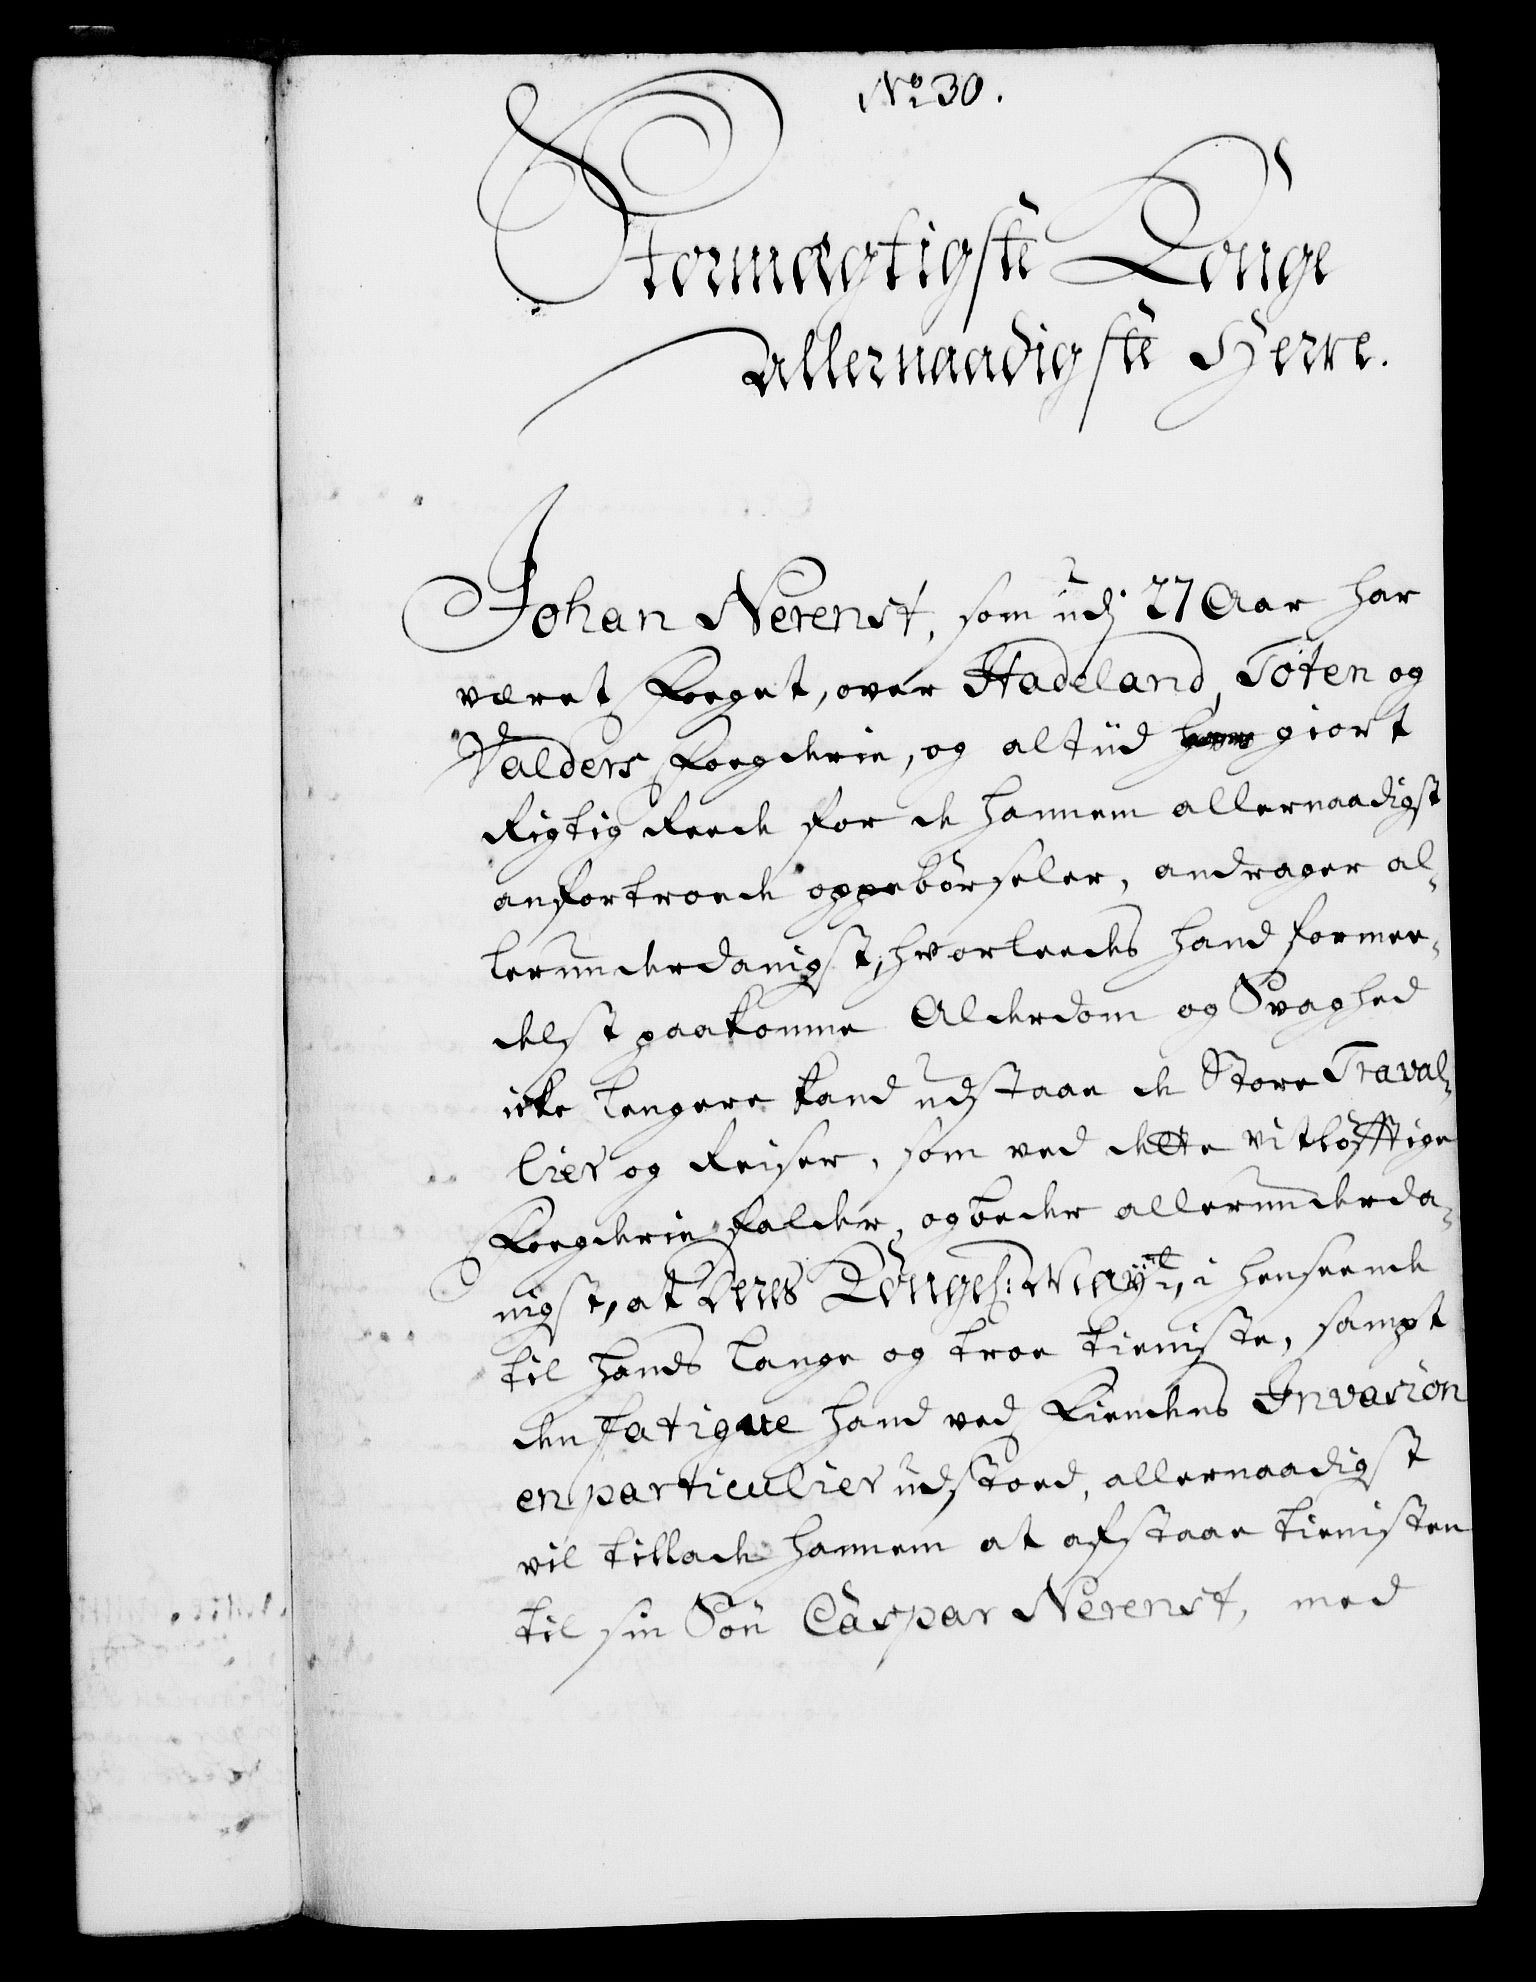 No 30.
Stormægtigste Konge
Allernaadigste Herre.
Johan Nerenst, som udj 27 Aar har
været Foeget, over Hadeland, Toten og
Valders Foegderie, og altiid giort
Rigtig Reede for de hannem allernaadigst
anfortroede oppebörseler, andrager al-
lerunderdanigst, hvorleedes hand formee-
delst paakomne Alderdom og Svaghed
icke lengere kand udstaae de Store Traval-
lier og Reiser, som ved dette vitlöfftige
Foegderie falder, og beder allerunderda-
nigst, at Deres Kongel: Mayt, i henseende
til hands lange og troe tieniste, sampt
den fatigue hand ved Fiendens Invasion
en particulier udstoed, allernaadigst
vil tillade hannem at afstaae tienisten
til sin Sön Caspar Nerenst, med